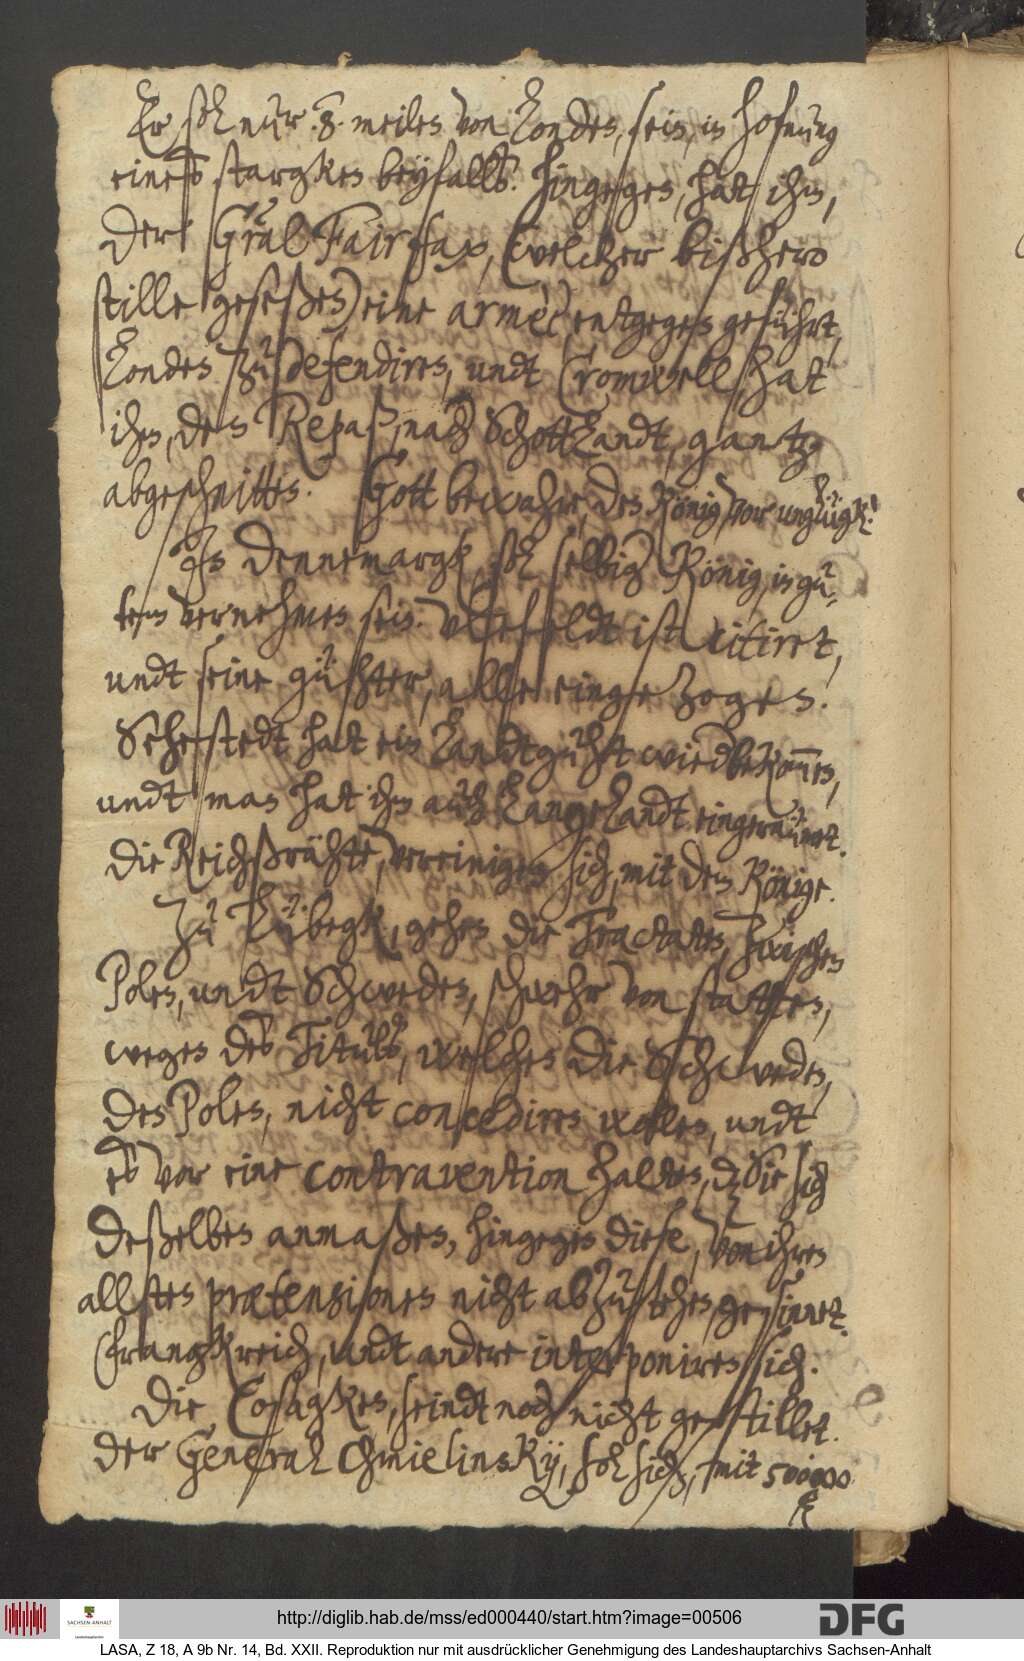 Er sol nur .8. meilen von Londen, sein, in hofnung
eineß starcken beyfalls. Hingegen, hat ihm,
der Gral Fairfax, (welcher bißhero
stille geseßen) eine armèe entgegen geführt,
Londen zu defendiren, undt Cromwell hat
ihm, den Repaß, nach Schottlandt, gantz
abgeschnitten. Gott bewahre, den König, vor unglügk!
In Dennemargk, sol selbig König, in gu-
tem vernehmen sein. Uhlefeldt ist citiret,
undt seine gühter, alle eingezogen.
Sehestedt hat ein Landtguht wiedbekom̄en,
undt man hat ihm auch Langelandt eingeraümet.
Die Reichßrähte, vereinigen sich, mit dem Könige.
Zu Lübegk, gehen die Tractaten, zwischen
Polen, undt Schweden, schwehr von statten,
wegen deß Titulß, welchen die Schweden,
den Polen, nicht concediren wollen, undt
eß vor eine contravention halten, d. Sie sich
deßelben anmaßen, hingegen diese, von ihren
alten prætensionen nicht abzustehen, gesinnet.
Frangkreich, undt andere interponiren sich.
Die Cosagken, seindt noch nicht gestillet.
Der General Chmielinsky, sol sich, mit 500000
http://diglib.hab.de/mss/ed000440/start.htm?image=00506
DFG
SACHSEN-ANHALT
Landeshauptarchiv
LASA, Z 18, A 9b Nr. 14, Bd. XXII. Reproduktion nur mit ausdrücklicher Genehmigung des Landeshauptarchivs Sachsen-Anhalt